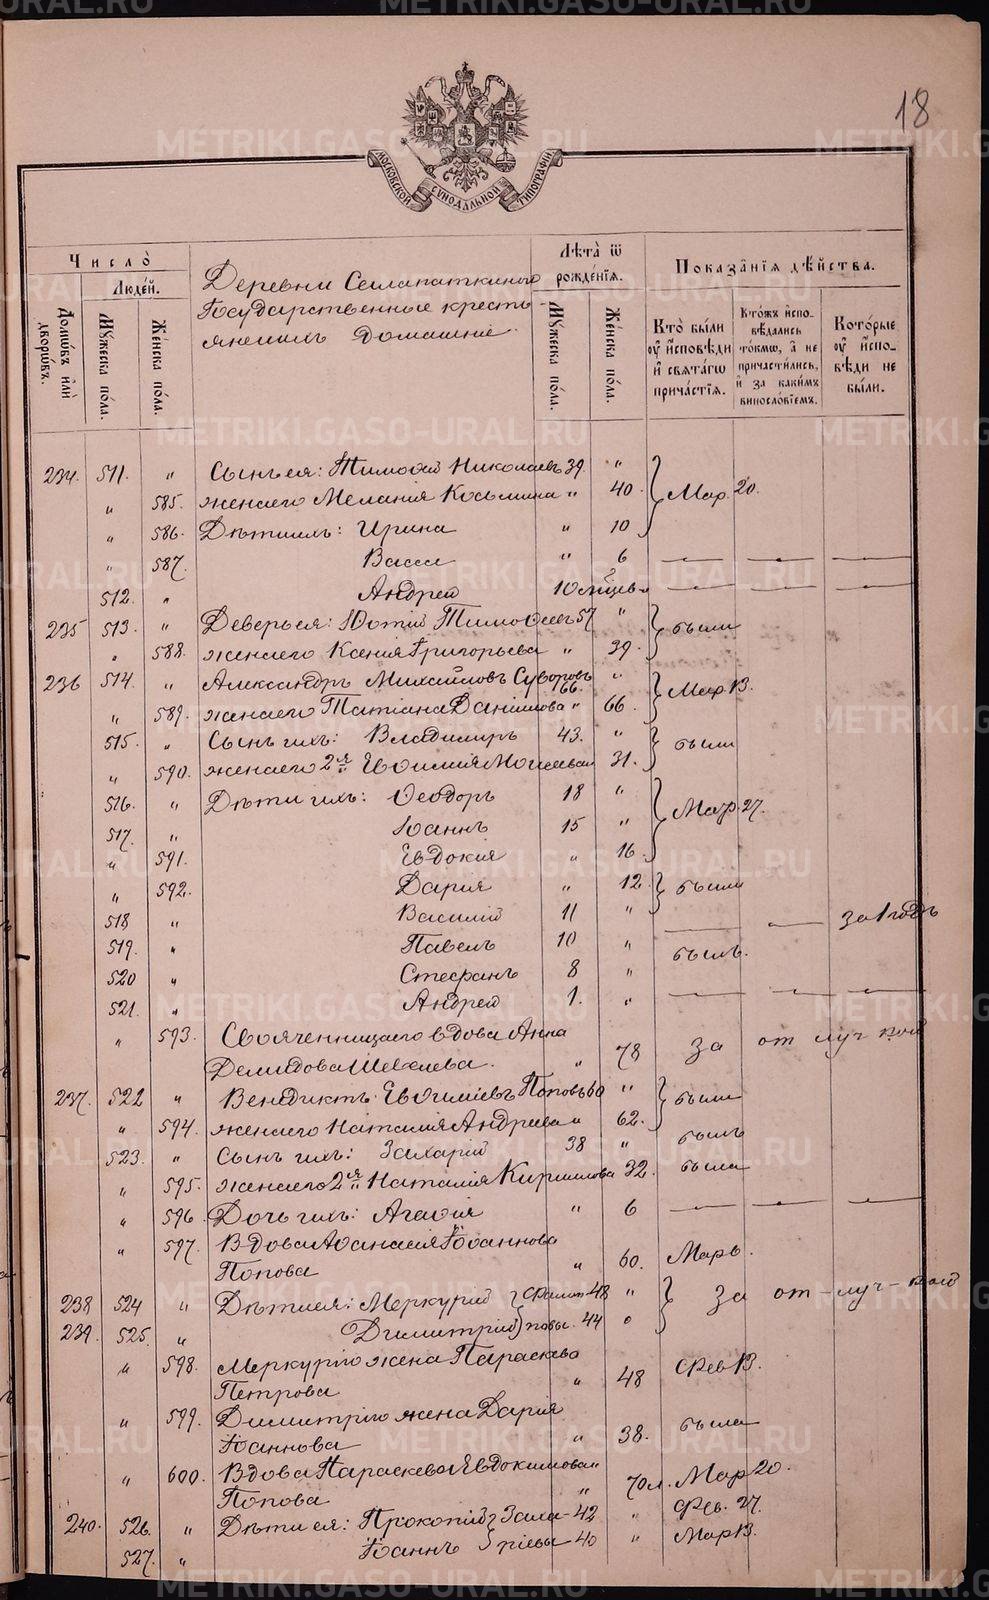 METRIKI.GASO-URAL.RU
18
МОСКОВСКОЙ СѴНОДАЛЬНОЙ ТИПОГРАФІИ
Число̀
Людей.
Домѡвъ илѝ дворѡвъ.
Мꙋжеска по́ла.
Же́нска по́ла.
Деревни
Государственные кресть-
яне ихъ домашніе.
Лѣта̀ ѿ рождє́нїѧ.
Мꙋжеска по́ла.
Же́нска по́ла.
Показа̑нїѧ дѣ́йства.
Кто̀ бы́ли ᲂу҆ и҆сповѣди и҆ свѧта́гѡ прича́стїѧ.
Кто́жъ и҆спо-вѣдались то́кмѡ, а҆ не причасти́лись, и҆ за каки́мъ виносло́вїемъ.
Кото́рые ᲂу҆ и҆спо-вѣди не бы́ли.
234. 511. " Сынъ ея: Тимоѳей Николаевъ 39. "
" 585. жена его Мелания Козьмина " 40. Мар. 20.
" 586. Дѣти ихъ: Ирина " 10
" 587. Васса " 6 — — —
512. " Андрей 10 мѣсев. " — — —
235 513. " Деверь ея: Ѳотій Тимоѳеевъ 57 " были
" 588. жена его Ксенія Григорьева " 39.
236 514. " Александръ Михайловъ Суворовъ 66. " Мар. 13.
" 589. жена его Татіана Даниилова " 66.
515. " Сынъ ихъ: Владимиръ 43. " были
" 590. жена его 2я Евѳимия Моисеева 31.
516. " Дѣти ихъ: Ѳеодоръ 18 " Мар. 27.
517. " Іоаннъ 15 "
" 591. Евдокия " 16.
" 592. Дарія " 12. были
518 " Василій 11 " — — за 1 годъ
519. " Павелъ 10 " былъ.
520 " Стефанъ 8 "
521. " Андрей 1. " — — —
" 593. Своячениц его вдова Анна
Демидова " 78 за от луч кой
237. 522 " Венедиктъ Евѳиміевъ Поповъ 60 " были
" 594. жена его Наталия Андреева " 62.
523. " Сынъ ихъ: Захарій 38 " былъ
" 595. жена его 2я Наталия Кириллова 32. была
" 596. Дочь ихъ: Агаѳія " 6 — — —
" 597. Вдова Аѳанасия Іоаннова
Попова " 60. Мар 6.
238 524 " Дѣти ея: Меркурій 48 " за от-луч-кой
239. 525. " Димитрій повы. 44 "
" 598. Меркурію жена Параскева
Петрова " 48 Фев 13.
" 599. Димитрію жена Дарія
Іоаннова " 38. была
" 600. Вдова Параскева Евдокимова "
Попова " 70 л. Мар 20.
240. 526. " Дѣти ея: Прокопій 42 " Фев. 27.
527. " Іоаннъ 40 " Мар 13.